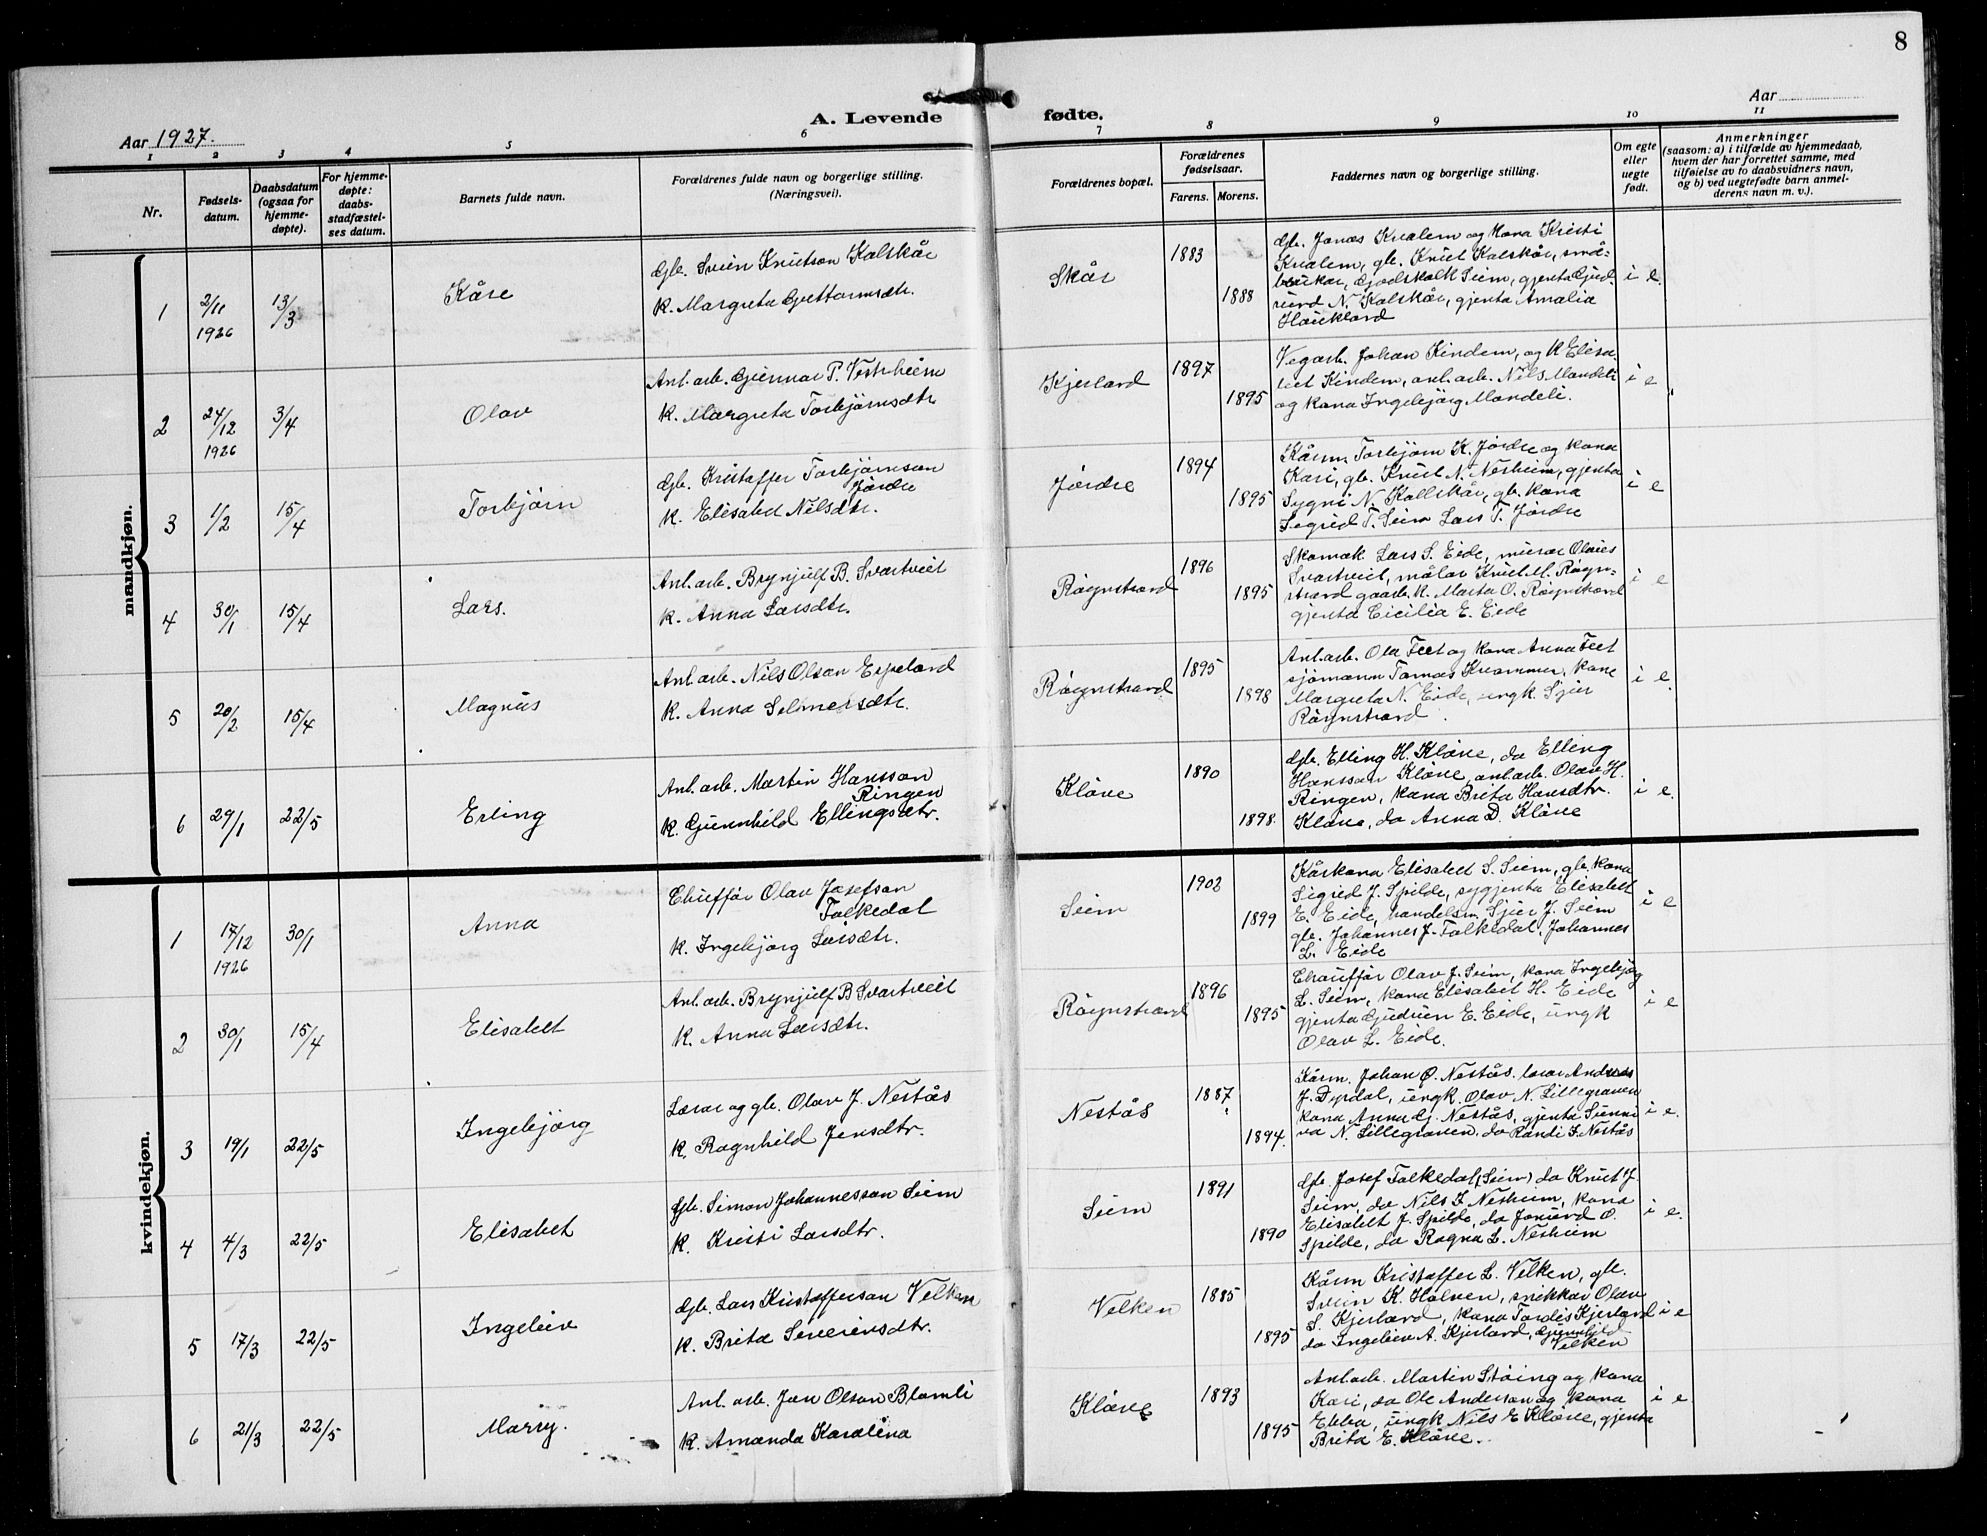 8
A. Levende fødte.
Aar 1927.
Aar
1 2 3 4 5 6 7 8 9 10 11
Nr.
Fødsels-
datum.
Daabsdatum
(ogsaa for
hjemme-
døpte).
For hjemme-
døpte:
daabs-
stadfæstel-
ses datum.
Barnets fulde navn.
Forældrenes fulde navn og borgerlige stilling.
(Næringsvei).
Forældrenes bopæl.
Forældrenes
fødselsaar.
Farens. Morens.
Faddernes navn og borgerlige stilling.
Om egte
eller
uegte
født.
Anmerkninger
(saasom: a) i tilfælde av hjemmedaab,
hvem der har forrettet samme, med
tilføielse av to daabsvidners navn,
og b) ved uegtefødte barn anmel-
derens navn m. v.).
mandkjøn.
1 2/11 1926 13/3 Kåre
Gb. Svein Knutson Kalskår
k. Margreta Guttormsdtr.
Skår 1883 1888
Gb. Jonas Kvalem og kona Kristi
Kvalem, gb. Knut Kalskår, små-
brukar, Godskalk Seim, gjenta Gud-
rund N. Kalskår, gjenta Amalia
Haukland
i e.
2 24/12 1926 3/4 Olav
Anl. arb. Gunnar P. Vestrheim
k. Margreta Torbjørnsdtr
Kjerland 1897 1895
Vegarb. Johan Kindem, og k Elisa
bet Kindem, anl. arb. Nils Mandeli
og kona Ingebjørg Mandeli.
i e
3 1/2 15/4 Torbjørn
Gb. Kristaffer Torbjørnson
Jørdre
k. Elisabet Nilsdtr.
Jørdre 1894 1895
Kårm. Torbjørn K. Jørdre og kona
Kari, gb. Knut N. Nesheim, gjenta
Sygni N. Kallskår, gb. kona
Sigrid T. Seim Lars T. Jørdre
i e
4 30/1 15/4 Lars.
Anl. arb. Brynjulf B. Svartveit
k. Anna Larsdtr.
Røynstrand 1896 1895
Skomak. Lars S. Eide, murar Olaus
Svartveit, målar Knut M. Røyn-
strand gaarb. k. Marta O. Røynstrand
gjenta Cicilia E. Eide
i e
5 20/2 15/4 Magnus
Anl. arb. Nils Olson Espeland
k. Anna Selmersdtr.
Røynstrand 1895 1898
Anl. arb. Ola Feet og kona Anna Feet
sjømann Tomas Kvammen, kona
Margreta N. Eide, ungk. Sjur
Røynstrand.
i e.
6 29/1 22/5 Erling
Anl. arb. Martin Hansson
Ringen
k. Gunnhild Ellingsdtr.
Kløve 1890 1898.
Gb. Elling H. Kløve, do Elling
Hansson Kløve, anl. arb. Olav H.
Ringen, kona Brita Hansdtr.
Kløve, do Anna D. Kløve
i e.
kvindekjøn.
1 17/12 1926 30/1 Anna
Chuffør Olav Josefson
Folkedal
k. Ingebjørg Larsdtr.
Seim 1902 1899
Kårkona Elisabet S. Seim, gb. kona
Sigrid J. Spilde, sygjenta Elisabet
E. Eide, handelsm. Sjur J. Seim
gb. Johannes J. Folkedal, Johannes
L. Eide
i e
2 30/1 15/4 Elisabet
Anl. arb. Brynjulf B Svartveit
k. Anna Larsdtr.
Røynstrand 1896 1895
Chauffør Olav J. Seim, kona Ingebjørg
L. Seim, kona Elisabet H. Eide
gjenta Gudrun E. Eide, ungk
Olav L. Eide.
i e
3 19/1 22/5 Ingebjørg
Lærar og gb. Olav J. Nestås
k. Ragnhild Jensdtr.
Nestås 1887 1894.
Kårm. Johan O. Nestås. lærar Andreas
J. Dyrdal, ungk. Olav N. Lillegraven
kona Anna G. Nestås, gjenta Sunni
va N. Lillegraven, do Randi J. Nestås
i e.
4 4/3 22/5 Elisabet
Gb. Simon Johannesson Seim
k. Kristi Larsdtr.
Seim 1891 1890
Gb. Josef Folkedal (Seim) do Knut J.
Seim, do Nils J. Nesheim, kona
Elisabet J. Spilde, do Jorund O.
Spilde, do Ragna L. Nesheim
i e.
5 17/3 22/5 Ingeleiv
Gb. Lars Kristafferson Velken
k. Brita Severinsdtr.
Velken 1885 1895
Kårm Kristaffer L. Velken, gb.
Svein K. Halven, snikkar Olav
S. Kjerland, kona Tordis Kjerland
do Ingeleiv A. Kjerland, Gunnhild
Velken
i e
6 21/3 22/5 Marry.
Anl. arb. Jon Olson Blomli
k. Amanda Karolina
Kløve 1893 1895
Anl. arb. Martin Støing og kona
Kari, do Ole Anderson og kona
Ebba, ungk Nils E Kløve, gjenta
Brita E. Kløve.
i e